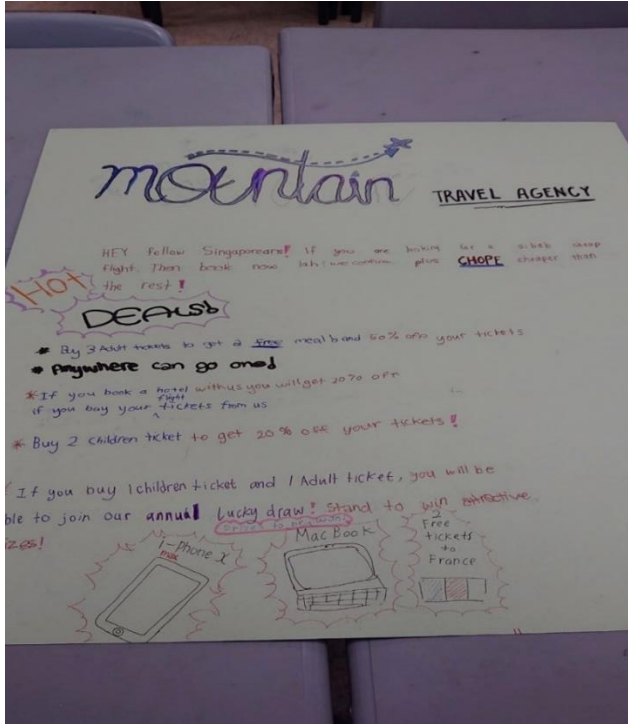 mountain TRAVEL AGENCY
HEY Fellow Singaporeans! If you are looking for a sibeh cheap
flight. Then book now lah! we confirm plus CHOPE cheaper than
the rest!
HOT
DEALS!
* Buy 3 Adult tickets to get a free meal and 50% off your tickets
* Anywhere can go one!
* If you book a hotel with us you will get 20% off
if you buy your flight tickets from us
* Buy 2 children ticket to get 20% off your tickets!
If you buy 1 children ticket and 1 Adult ticket, you will be
ble to join our annual lucky draw! Stand to win attractive
izes!
i-Phone X
max
MacBook
2
Free
tickets
to
France